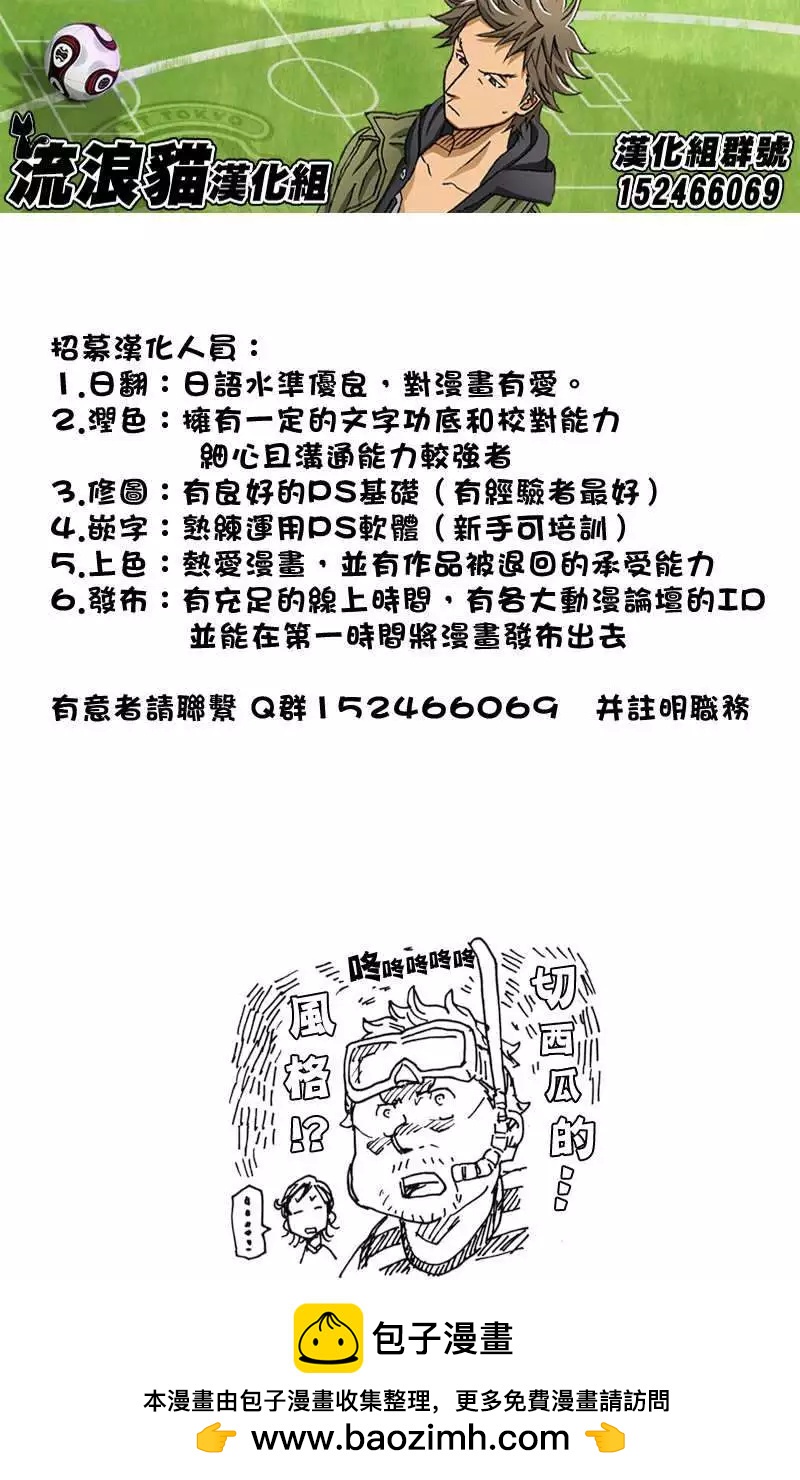 流浪貓漢化組
漢化組群號
152466069
招募漢化人員：
1.日翻：日語水準優良，對漫畫有愛。
2.潤色：擁有一定的文字功底和校對能力
細心且溝通能力較強者
3.修圖：有良好的PS基礎（有經驗者最好）
4.嵌字：熟練運用PS軟體（新手可培訓）
5.上色：熱愛漫畫，並有作品被退回的承受能力
6.發布：有充足的線上時間，有各大動漫論壇的ID
並能在第一時間將漫畫發布出去
有意者請聯繫 Q群152466069 并註明職務
咚咚咚咚咚
切西瓜的…
風格!?
包子漫畫
本漫畫由包子漫畫收集整理，更多免費漫畫請訪問
👉 www.baozimh.com 👈